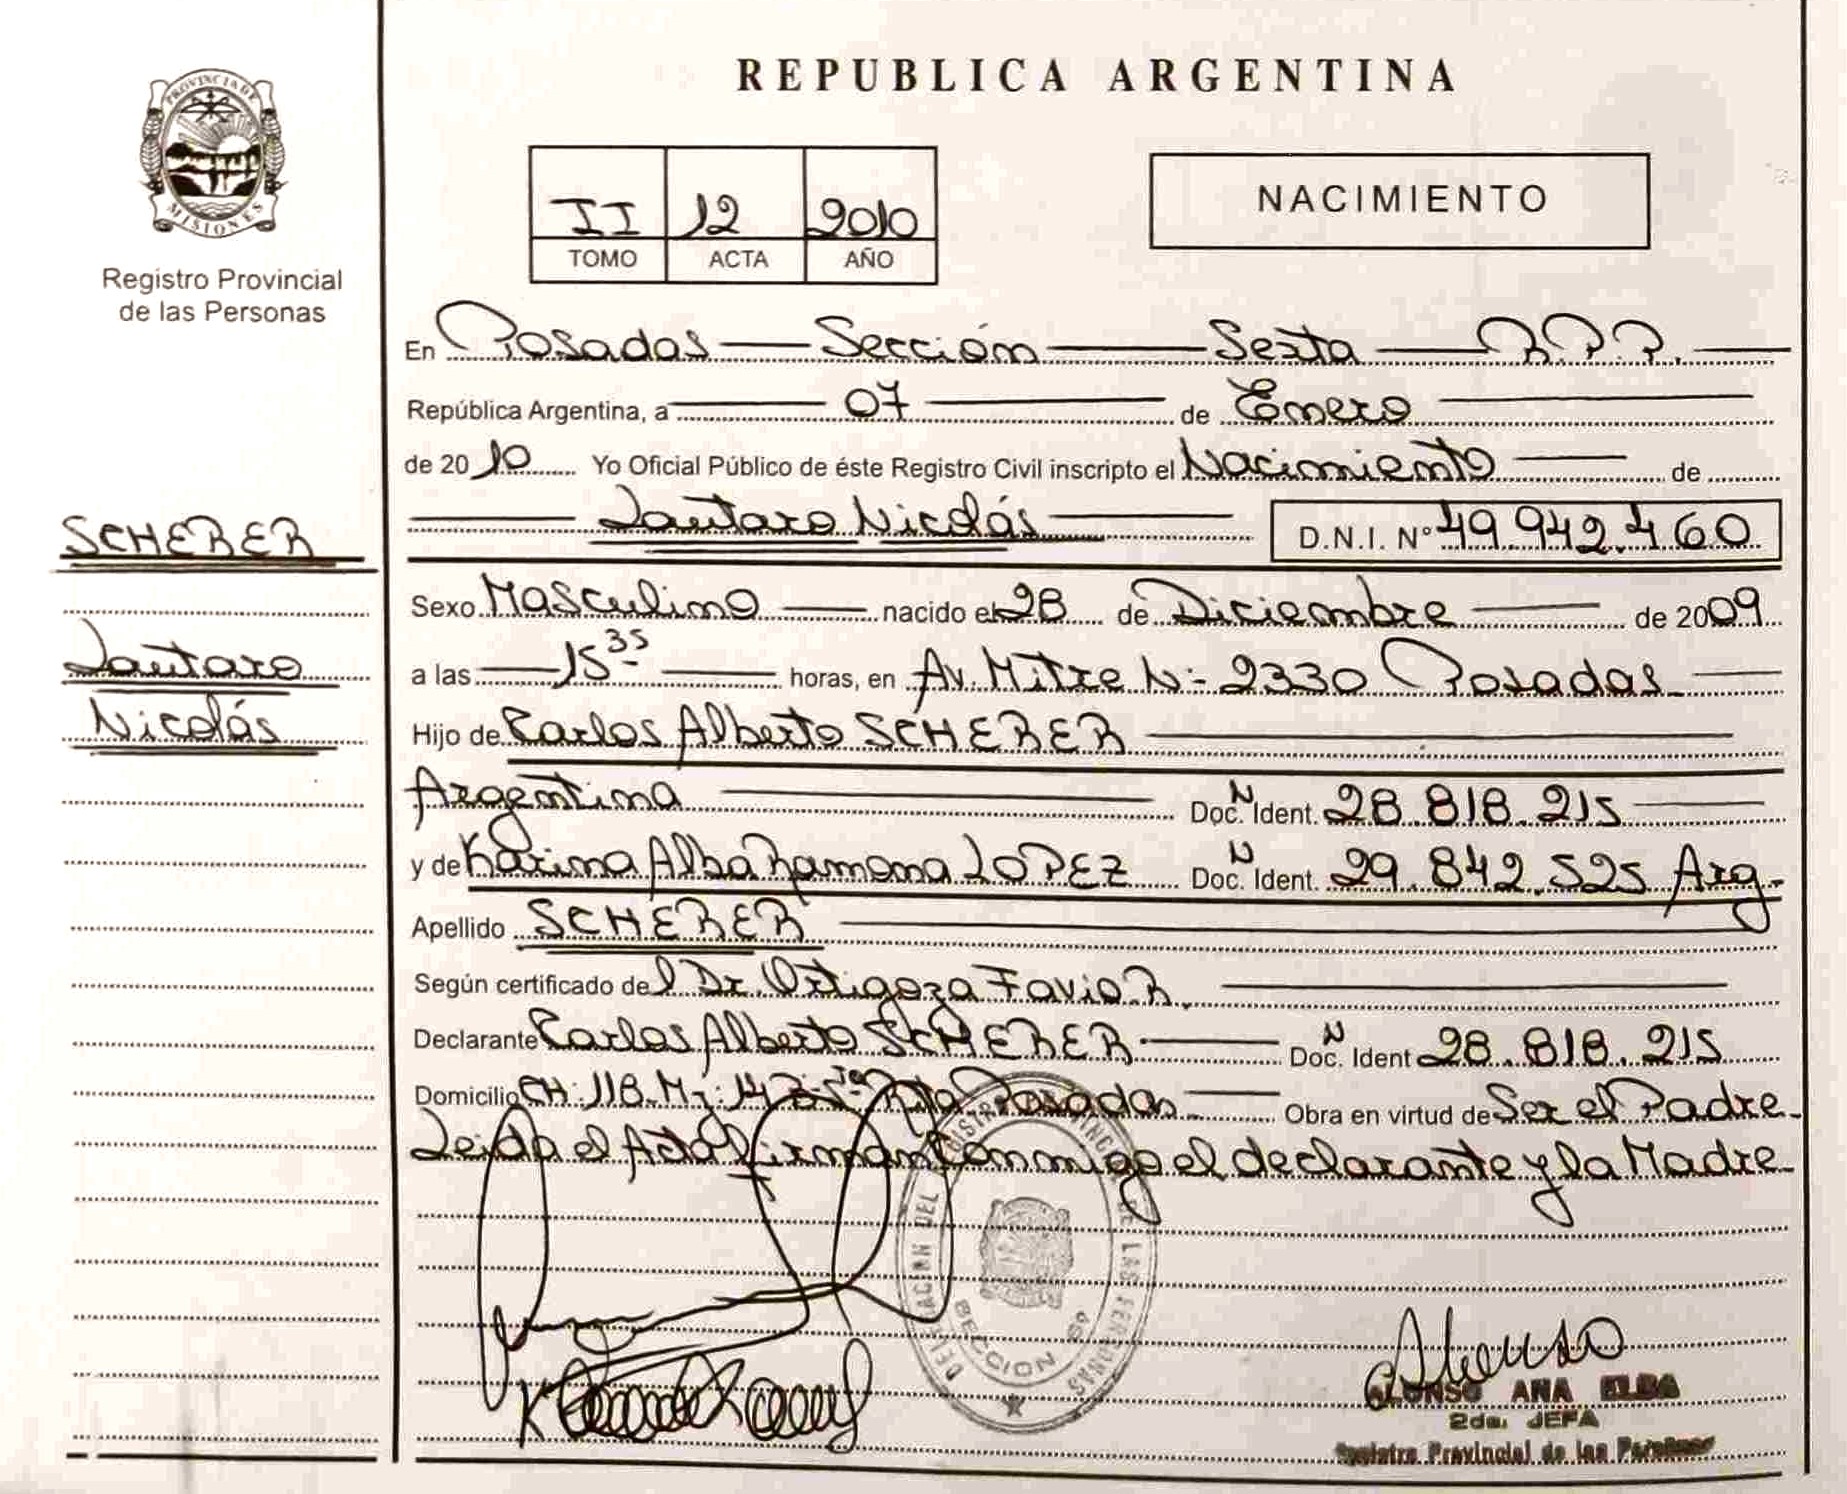 REPUBLICA ARGENTINA
PROVINCIA DE
MISIONES
Registro Provincial
de las Personas
II 12 2010
TOMO ACTA AÑO
NACIMIENTO
En Posadas Sección Sexta R.P.P.
República Argentina, a 07 de Enero
de 2010 Yo Oficial Público de éste Registro Civil inscripto el Nacimiento de
Lautaro Nicolás D.N.I. Nº 49.942.460
SCHERER
Lautaro
Nicolás
Sexo Masculino nacido el 28 de Diciembre de 2009
a las 15 35 horas, en Av. Mitre N:- 2330 Posadas
Hijo de Carlos Alberto SCHERER
Argentina Doc. N Ident. 28.818.215
y de Karina Alba Ramona LOPEZ Doc. N Ident. 29.842.525 Arg.
Apellido SCHERER
Según certificado del Dr. Ortigoza Favio R.
Declarante Carlos Alberto SCHERER Doc. N Ident 28.818.215
Domicilio CH: 118- Posadas Obra en virtud de Ser el Padre
Leida el Acta firman Conmigo el declarante y la Madre
DELEGACION DEL REGISTRO PROVINCIAL DE LAS PERSONAS
SECCION 6º
ALONSO ANA ELBA
2da. JEFA
Registro Provincial de las Personas